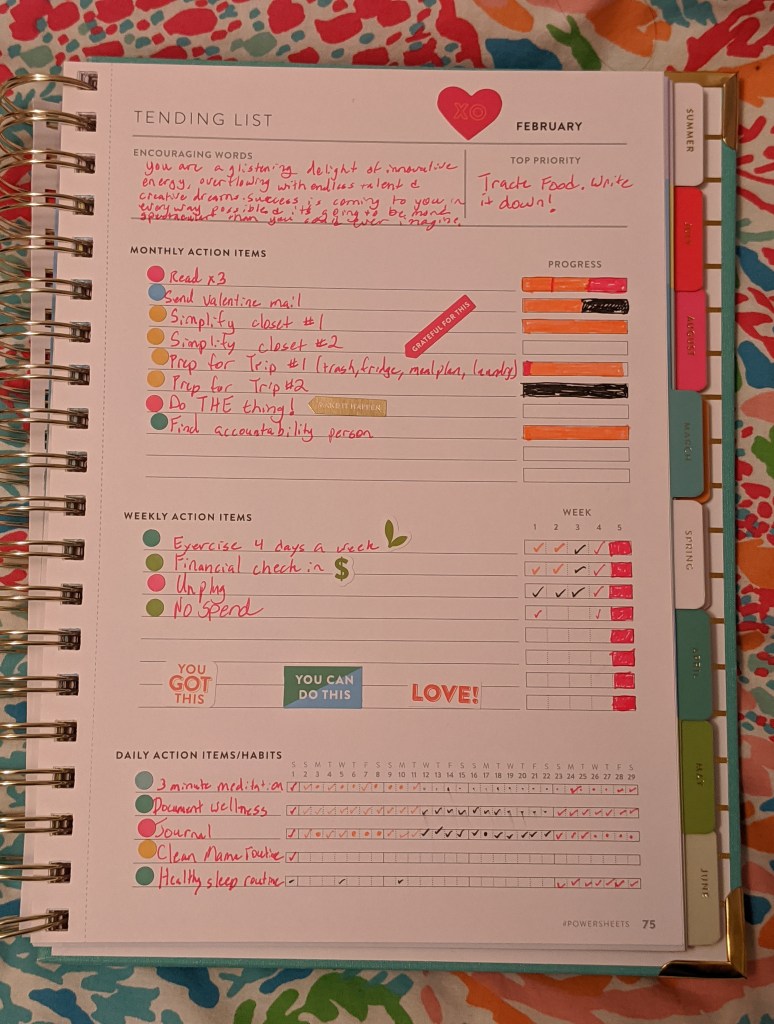 TENDING LIST
XO
FEBRUARY
ENCOURAGING WORDS
you are a glistening delight of innovative
energy, overflowing with endless talent &
creative dreams. success is coming to you in
every way possible & it's going to be more
spectacular than you could ever imagine.
TOP PRIORITY
Track Food. Write
it down!
MONTHLY ACTION ITEMS
PROGRESS
Read x3
Send valentine mail
Simplify closet #1
GRATEFUL FOR THIS
Simplify closet #2
Prep for Trip #1 (trash, fridge, meal plan, laundry)
Prep for Trip #2
Do THE thing!
MAKE IT HAPPEN
Find accountability person
WEEKLY ACTION ITEMS
WEEK
1 2 3 4 5
Exercise 4 days a week
Financial check in $
Unplug
No spend
YOU
GOT
THIS
YOU CAN
DO THIS
LOVE!
DAILY ACTION ITEMS/HABITS
S S M T W T F S S M T W T F S S M T W T F S S M T W T F S
1 2 3 4 5 6 7 8 9 10 11 12 13 14 15 16 17 18 19 20 21 22 23 24 25 26 27 28 29
3 minute meditation
Document wellness
Journal
Clean Mama Routine
Healthy sleep routine
#POWERSHEETS 75
SUMMER
JULY
AUGUST
MARCH
SPRING
APRIL
MAY
JUNE